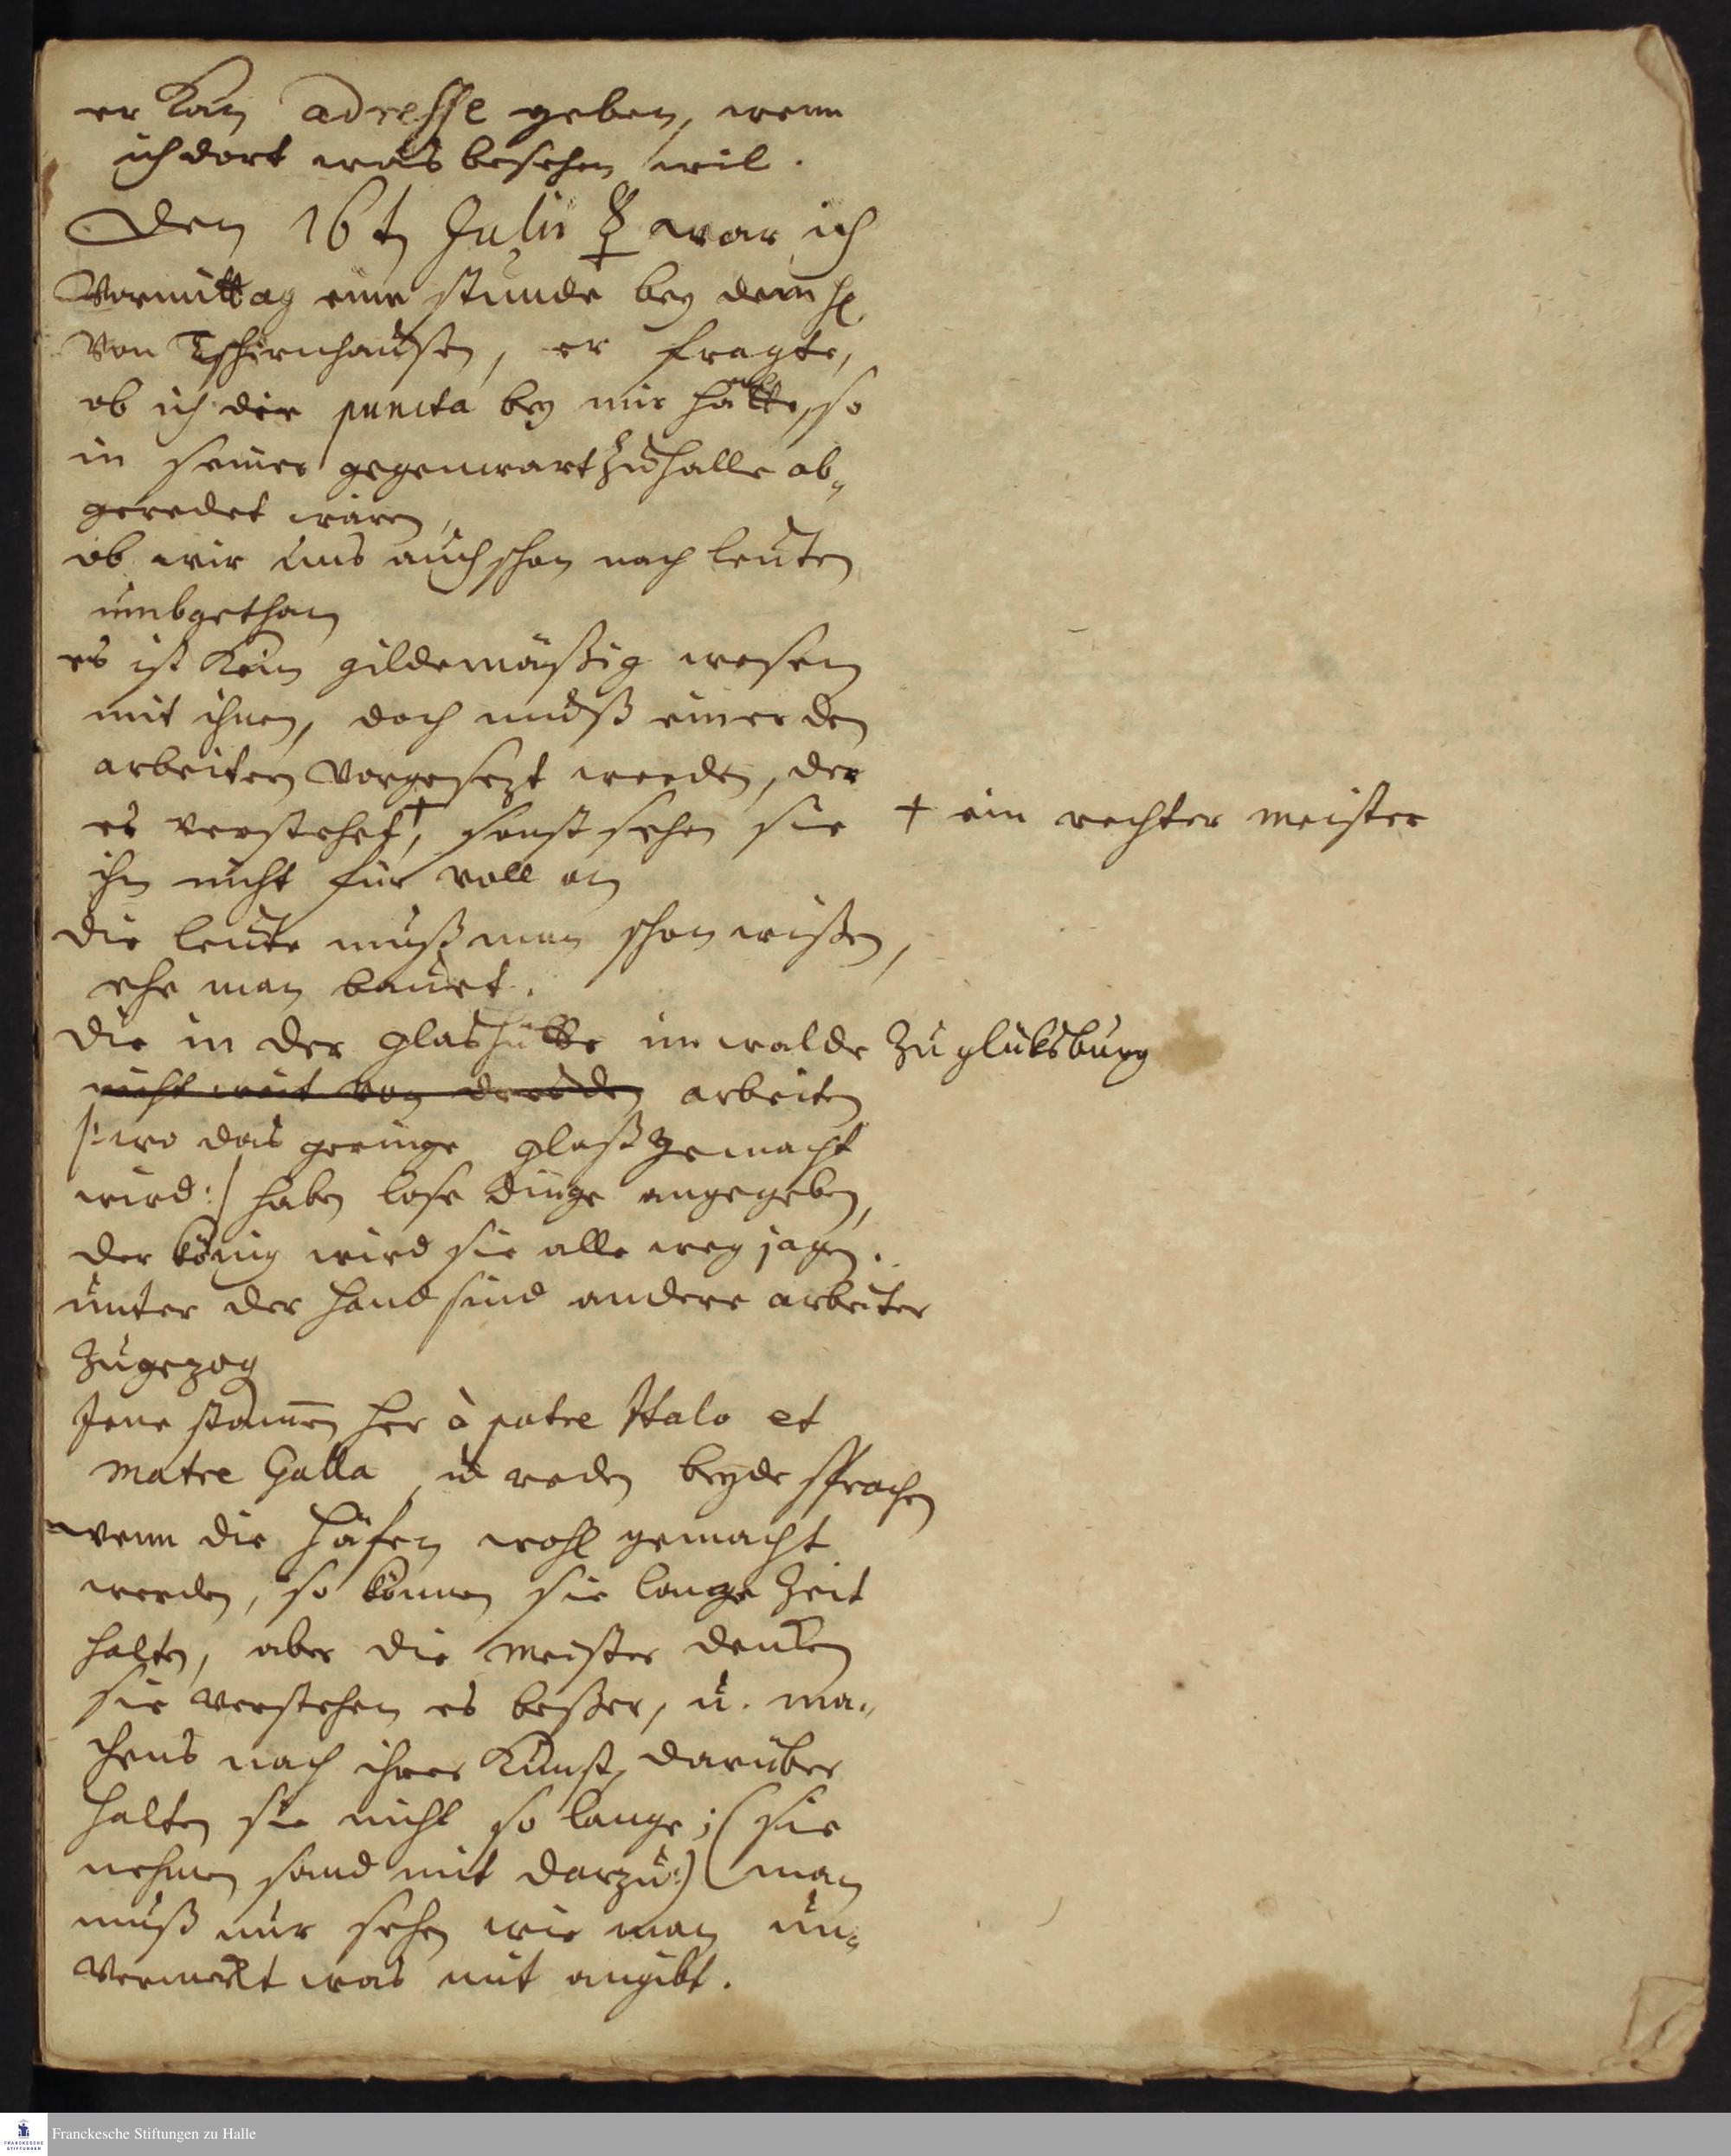 er kan adresse geben, wenn
ich dort was besehen wil.
Den 16t Julii ☿ war ich
Vormittag eine stunde bey dem H
von Tschirnhausen, er fragte,
ob ich die puncta bey mir hätte, so
in seiner gegenwart zu Halle ab-
geredet wären,
ob wir uns auch schon nach leuten
umbgethan
es ist kein gildemäßig wesen
mit ihnen, doch muß einer den
arbeitern vorgesezt werden, der
es verstehet †, sonst sehen sie
† ein rechter meister
ihn nicht für voll an
die leute muß man schon wißen,
ehe man bauet.
die in der glashütte im walde zu glüksburg
nicht weit von dresden arbeiten
/: wo das geringe glaß gemacht
wird :/ haben lose dinge angegeben,
der könig wird sie alle weg jagen.
unter der hand sind andere arbeiter
zugezog
Jene stamen her à patre Italo et
matre Galla, u reden beyde sprachen
wenn die häfen wohl gemacht
werden, so können sie lange zeit
halten, aber die meister denken
sie verstehen es beßer, u. ma-
chens nach ihrer Kunst, darüber
halten sie nicht so lange; (sie
nehmen sand mit darzu:) (man
muß nur sehen wie man un-
vermerkt was mit angibt.
Franckesche Stiftungen zu Halle